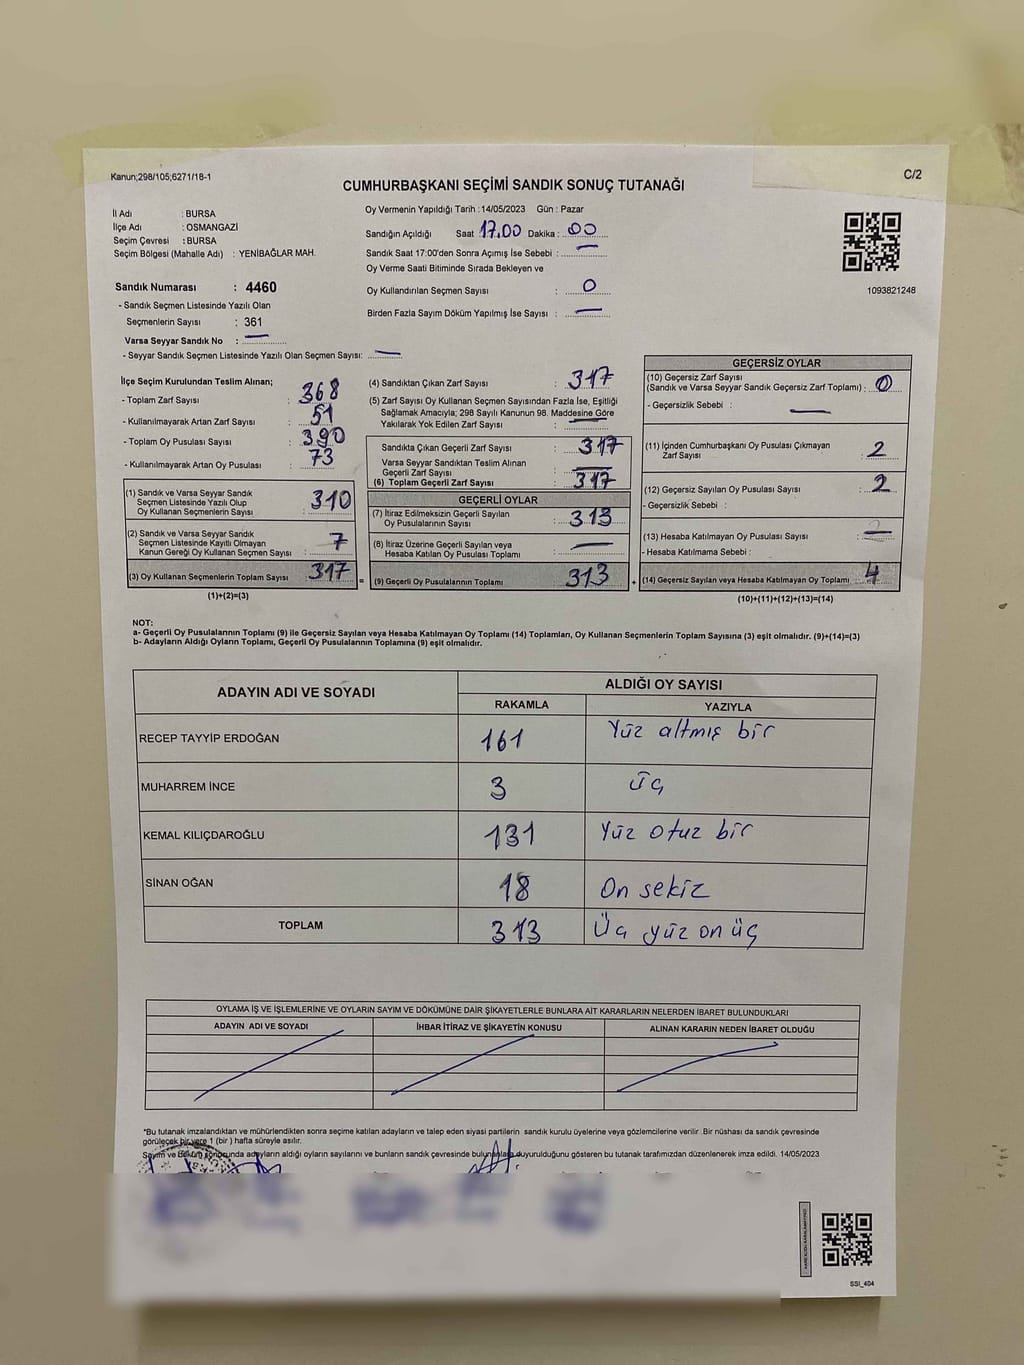 Kanun;298/105;6271/18-1
C/2
CUMHURBAŞKANI SEÇİMİ SANDIK SONUÇ TUTANAĞI
İl Adı : BURSA
İlçe Adı : OSMANGAZİ
Seçim Çevresi : BURSA
Seçim Bölgesi (Mahalle Adı) : YENİBAĞLAR MAH.
Oy Vermenin Yapıldığı Tarih :14/05/2023 Gün : Pazar
Sandığın Açıldığı Saat 17.00 Dakika : 00
Sandık Saat 17:00'den Sonra Açımış İse Sebebi : —
Oy Verme Saati Bitiminde Sırada Bekleyen ve
Oy Kullandırılan Seçmen Sayısı : 0
Birden Fazla Sayım Döküm Yapılmış İse Sayısı : —
1093821248
Sandık Numarası : 4460
- Sandık Seçmen Listesinde Yazılı Olan
Seçmenlerin Sayısı : 361
Varsa Seyyar Sandık No : —
- Seyyar Sandık Seçmen Listesinde Yazılı Olan Seçmen Sayısı: —
İlçe Seçim Kurulundan Teslim Alınan;
- Toplam Zarf Sayısı : 368
- Kullanılmayarak Artan Zarf Sayısı : 51
- Toplam Oy Pusulası Sayısı : 390
- Kullanılmayarak Artan Oy Pusulası : 73
(1) Sandık ve Varsa Seyyar Sandık
Seçmen Listesinde Yazılı Olup
Oy Kullanan Seçmenlerin Sayısı : 310
(2) Sandık ve Varsa Seyyar Sandık
Seçmen Listesinde Kayıtlı Olmayan
Kanun Gereği Oy Kullanan Seçmen Sayısı : 7
(3) Oy Kullanan Seçmenlerin Toplam Sayısı : 317 =
(1)+(2)=(3)
(4) Sandıktan Çıkan Zarf Sayısı : 317
(5) Zarf Sayısı Oy Kullanan Seçmen Sayısından Fazla İse, Eşitliği
Sağlamak Amacıyla; 298 Sayılı Kanunun 98. Maddesine Göre
Yakılarak Yok Edilen Zarf Sayısı : —
Sandıkta Çıkan Geçerli Zarf Sayısı : 317
Varsa Seyyar Sandıktan Teslim Alınan
Geçerli Zarf Sayısı : —
(6) Toplam Geçerli Zarf Sayısı : 317
GEÇERLİ OYLAR
(7) İtiraz Edilmeksizin Geçerli Sayılan
Oy Pusulalarının Sayısı : 313
(8) İtiraz Üzerine Geçerli Sayılan veya
Hesaba Katılan Oy Pusulası Toplamı : —
(9) Geçerli Oy Pusulalarının Toplamı 313 +
GEÇERSİZ OYLAR
(10) Geçersiz Zarf Sayısı
(Sandık ve Varsa Seyyar Sandık Geçersiz Zarf Toplamı) : 0
- Geçersizlik Sebebi : —
(11) İçinden Cumhurbaşkanı Oy Pusulası Çıkmayan
Zarf Sayısı : 2
(12) Geçersiz Sayılan Oy Pusulası Sayısı : 2
- Geçersizlik Sebebi :
(13) Hesaba Katılmayan Oy Pusulası Sayısı : —
- Hesaba Katılmama Sebebi :
(14) Geçersiz Sayılan veya Hesaba Katılmayan Oy Toplamı : 4
(10)+(11)+(12)+(13)=(14)
NOT:
a- Geçerli Oy Pusulalarının Toplamı (9) ile Geçersiz Sayılan veya Hesaba Katılmayan Oy Toplamı (14) Toplamları, Oy Kullanan Seçmenlerin Toplam Sayısına (3) eşit olmalıdır. (9)+(14)=(3)
b- Adayların Aldığı Oyların Toplamı, Geçerli Oy Pusulalarının Toplamına (9) eşit olmalıdır.
ADAYIN ADI VE SOYADI ALDIĞI OY SAYISI
RAKAMLA YAZIYLA
RECEP TAYYİP ERDOĞAN 161 Yüz altmış bir
MUHARREM İNCE 3 üç
KEMAL KILIÇDAROĞLU 131 Yüz otuz bir
SİNAN OĞAN 18 On sekiz
TOPLAM 313 Üç yüz on üç
OYLAMA İŞ VE İŞLEMLERİNE VE OYLARIN SAYIM VE DÖKÜMÜNE DAİR ŞİKAYETLERLE BUNLARA AİT KARARLARIN NELERDEN İBARET BULUNDUKLARI
ADAYIN ADI VE SOYADI İHBAR İTİRAZ VE ŞİKAYETİN KONUSU ALINAN KARARIN NEDEN İBARET OLDUĞU
*Bu tutanak imzalandıktan ve mühürlendikten sonra seçime katılan adayların ve talep eden siyasi partilerin sandık kurulu üyelerine veya gözlemcilerine verilir. Bir nüshası da sandık çevresinde
görülecek bir yere 1 (bir ) hafta süreyle asılır.
Sayım ve Döküm sonucunda adayların aldığı oyların sayılarını ve bunların sandık çevresinde bulunanlara duyurulduğunu gösteren bu tutanak tarafımızdan düzenlenerek imza edildi. 14/05/2023
SSI_404